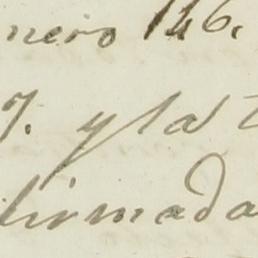 nero 146.
7. y la t
firmada